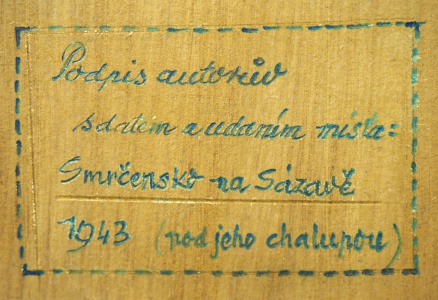 Podpis autorův
s datem a udáním místa:
Smrčensko na Sázavě
1943 (pod jeho chalupou)